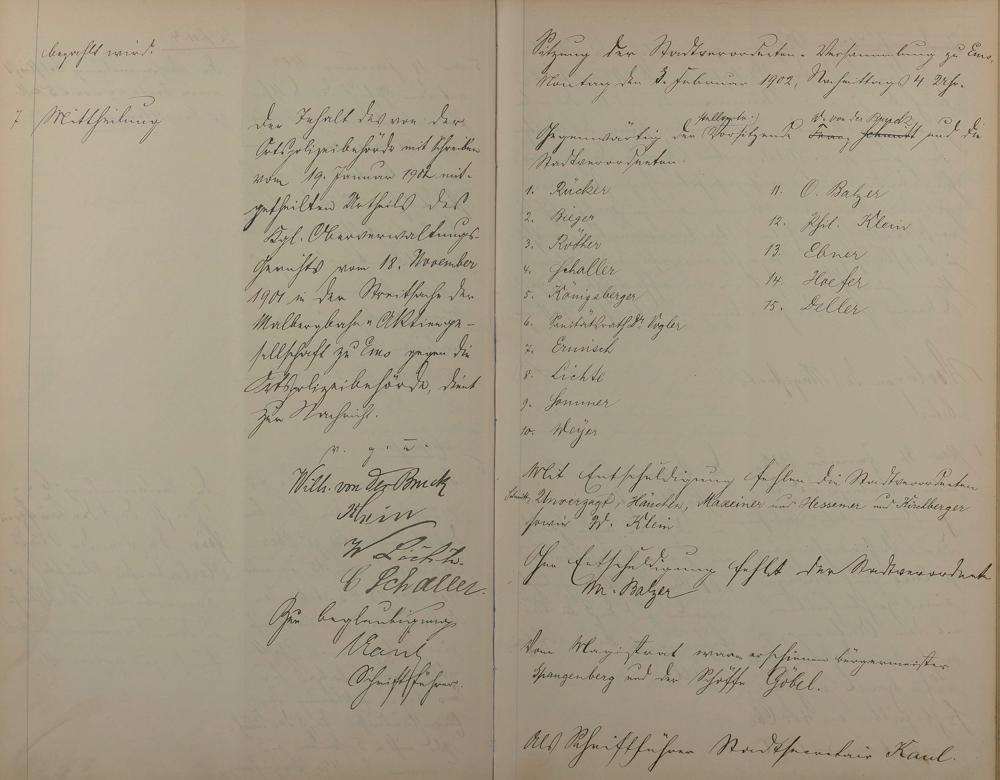 bezahlt wird.
7 Mittheilung
Der Inhalt des von der
Ortspolizeibehörde mit Schreiben
vom 19. Januar 1902 mit-
getheilten Urtheils des
Kgl. Oberverwaltungs-
Gerichts vom 18. November
1901 in der Streitsache der
Malbergbahn-Aktienge-
sellschaft zu Ems gegen die
Ortspolizeibehörde, dient
zur Nachricht.
v. g. u.
Wilh. von der Bruck
Klein
W Lichte
C Schaller.
Zur Beglaubigung
Kaul
Schriftführer.
Sitzung der Stadtverordneten-Versammlung zu Ems,
Montag den 3. Februar 1902, Nachmittags 4 Uhr.
stellvertr. W. von der Bruck
Gegenwärtig der Vorsitzende Franz Schmitt und die
Stadtverordneten:
1. Rücker
2. Bieger
3. Röther
4. Schaller
5. Königsberger
6. Sanitätsrath Dr. Vogler
7. Ermisch
8. Lichte
9. Sommer
10. Weyer
11. O. Balzer
12. Phil. Klein
13. Ebner
14. Hoefer
15. Deller
Mit Entschuldigung fehlen die Stadtverordneten
Schmitt, Unverzagt, Hänchen, Maxeiner und Hessemer und Kirchberger
sowie W. Klein
Ohne Entschuldigung fehlt der Stadtverordnete
M. Balzer
Vom Magistrat waren erschienen Bürgermeister
Spangenberg und der Schöffe Göbel.
Als Schriftführer Stadtsecretair Kaul.